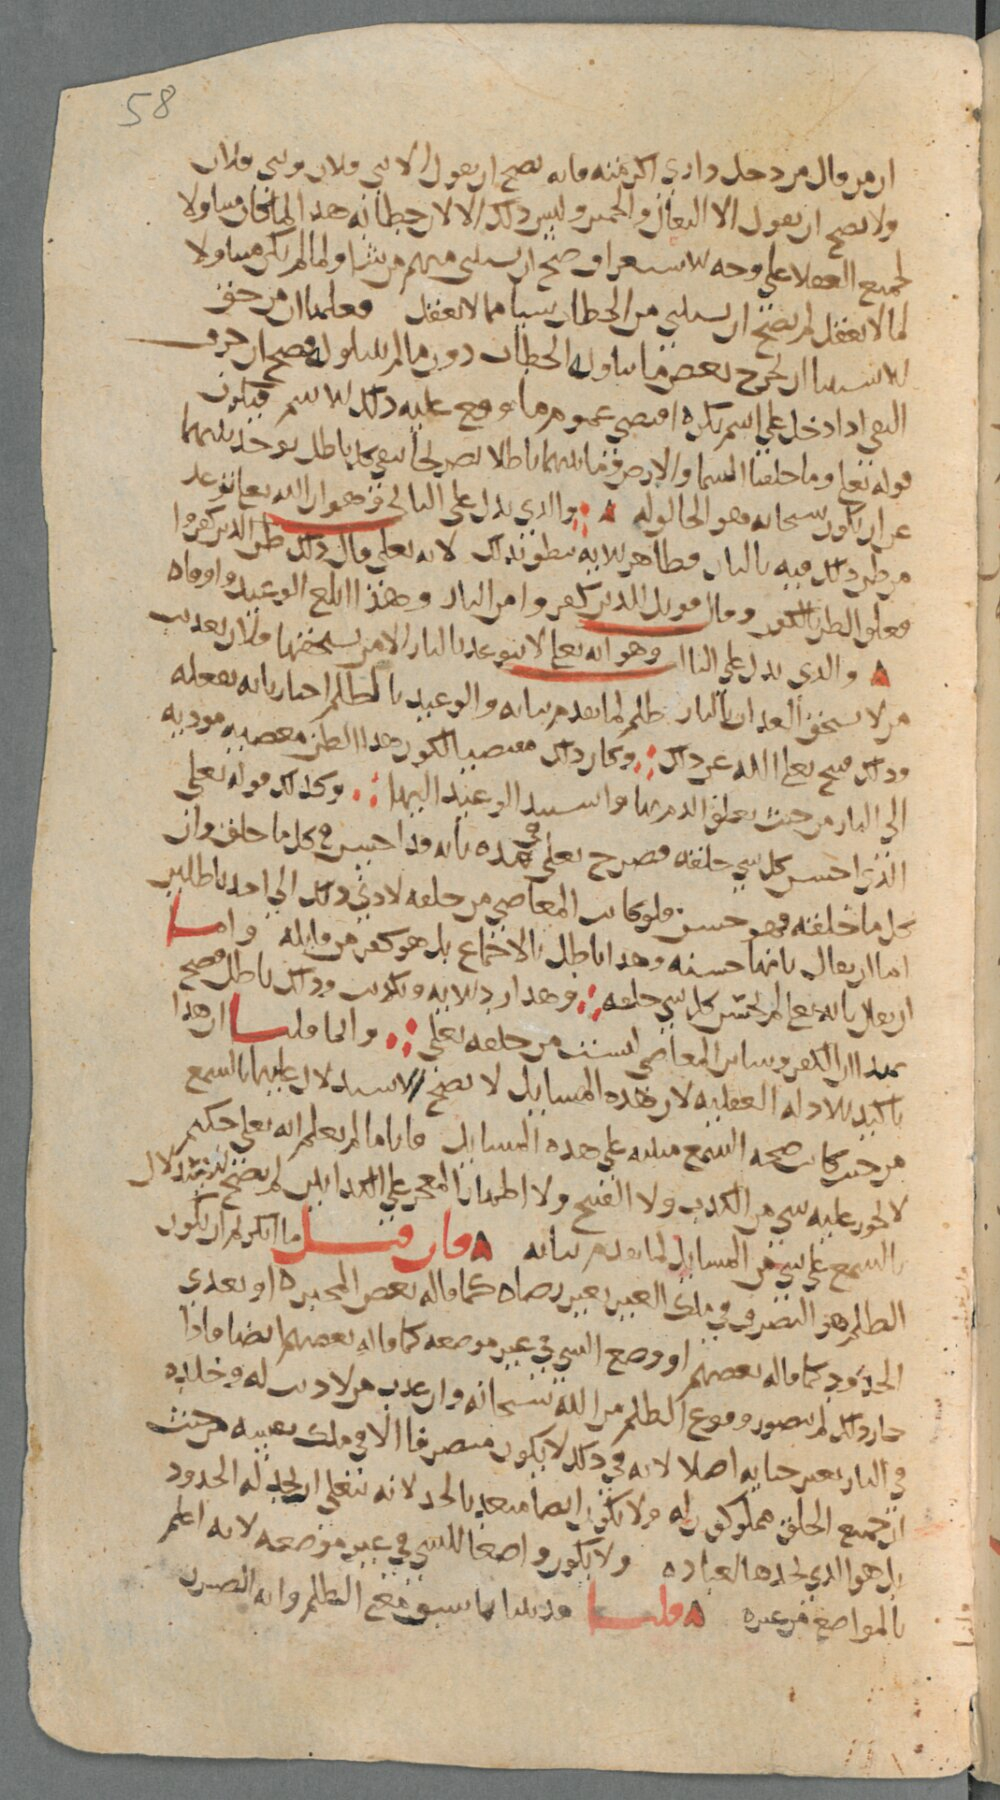 58
ان من قال من دخل داري اكرمته فانه يصح ان يقول الا بني فلان وبني فلان
ولا يصح ان يقول الا البغال والحمير وليس ذلك الا لان خطابه هذا لما كان متناولا
لجميع العقلا على وجه الاستغراق صح ان يستثني منهم من يشا ولما لم يكن متناولا
لما لا يعقل لم يصح ان يستثني من الخطاب شيا مما لا يعقل فعلمنا ان من حق
الاستثنا ان يخرج بعض ما تناوله الخطاب دون ما لم يتناوله فصح ان حرف
النفي اذا دخل على اسم نكره اقتضى عموم ما وقع عليه ذلك الاسم فيكون
قوله تعلى وما خلقنا السما والارض وما بينهما باطلا نفي كل باطل يوجد بينهما
عن ان يكون سبحانه هو الخالق له والذي يدل على الثاني وهو ان الله تعلى توعد
من ظن ذلك فيه بالنار فظاهر الايه ينطق بذلك لانه تعلى قال ذلك ظن الذين كفروا
فعلق الظن بالكفر وقال فويل للذين كفروا من النار وهذا ابلغ الوعيد واوفاه
والذي يدل على الثالث وهو انه تعلى لا يتوعد بالنار الا من يستحقها فلان تعذيب
من لا يستحق العذاب بالنار ظلم لما تقدم بيانه والوعيد بالظلم اخبار بانه يفعله
وذلك قبيح تعلى الله عن ذلك وكان ذلك مقتضيا لكون هذا الظن معصيه موديه
الى النار من حيث تعلق الذم بها واستند الوعيد اليها وكذلك قوله تعلى
الذي احسن كل شي خلقه فصرح تعلى في هذه بانه قد احسن في كل ما خلق وان
كل ما خلقه فهو حسن فلو كانت المعاصي من خلقه لادى ذلك الى احد باطلين
اما ان يقال بانها حسنه وهذا باطل بالاجماع بل هو كفر من قايله واما
ان يقال بانه تعلى لم يحسن كل شي خلقه وهذا رد للايه وتكذيب وذلك باطل فصح
بهذا ان الكفر وساير المعاصي ليست من خلقه تعلى وانما قلنا ان هذا
تاكيد للادله العقليه لان هذه المسايل لا يصح الاستدلال عليها بالسمع
من حيث كانت صحه السمع مبنيه على هذه المسايل فانا ما لم نعلم انه تعلى حكيم
لا يجوز عليه شي من الكذب ولا القبيح ولا اظهار المعجز على الكذابين لم يصح الاستدلال
بالسمع على شي من المسايل لما تقدم بيانه فان قيل ما انكرتم ان يكون
الظلم هو التصرف في ملك الغير بغير رضاه كما قاله بعض المجبره او تعدي
الحدود كما قاله بعضهم او وضع الشي في غير موضعه كما قاله بعضهم ايضا فاذا
جاز ذلك لم يتصور وقوع الظلم من الله سبحانه وان عذب من لا ذنب له وخلده
في النار بغير جنايه اصلا لانه في ذلك لا يكون متصرفا الا في ملك نفسه من حيث
ان جميع الخلق مملوكون له ولا يكون ايضا متعديا لحد لانه تعلى ان يحد له الحدود
بل هو الذي يحدها لعباده ولا يكون واضعا للشي في غير موضعه لانه اعلم
بالمواضع من غيره قلنا قد بينا ما سبق معنى الظلم وانه الضرر